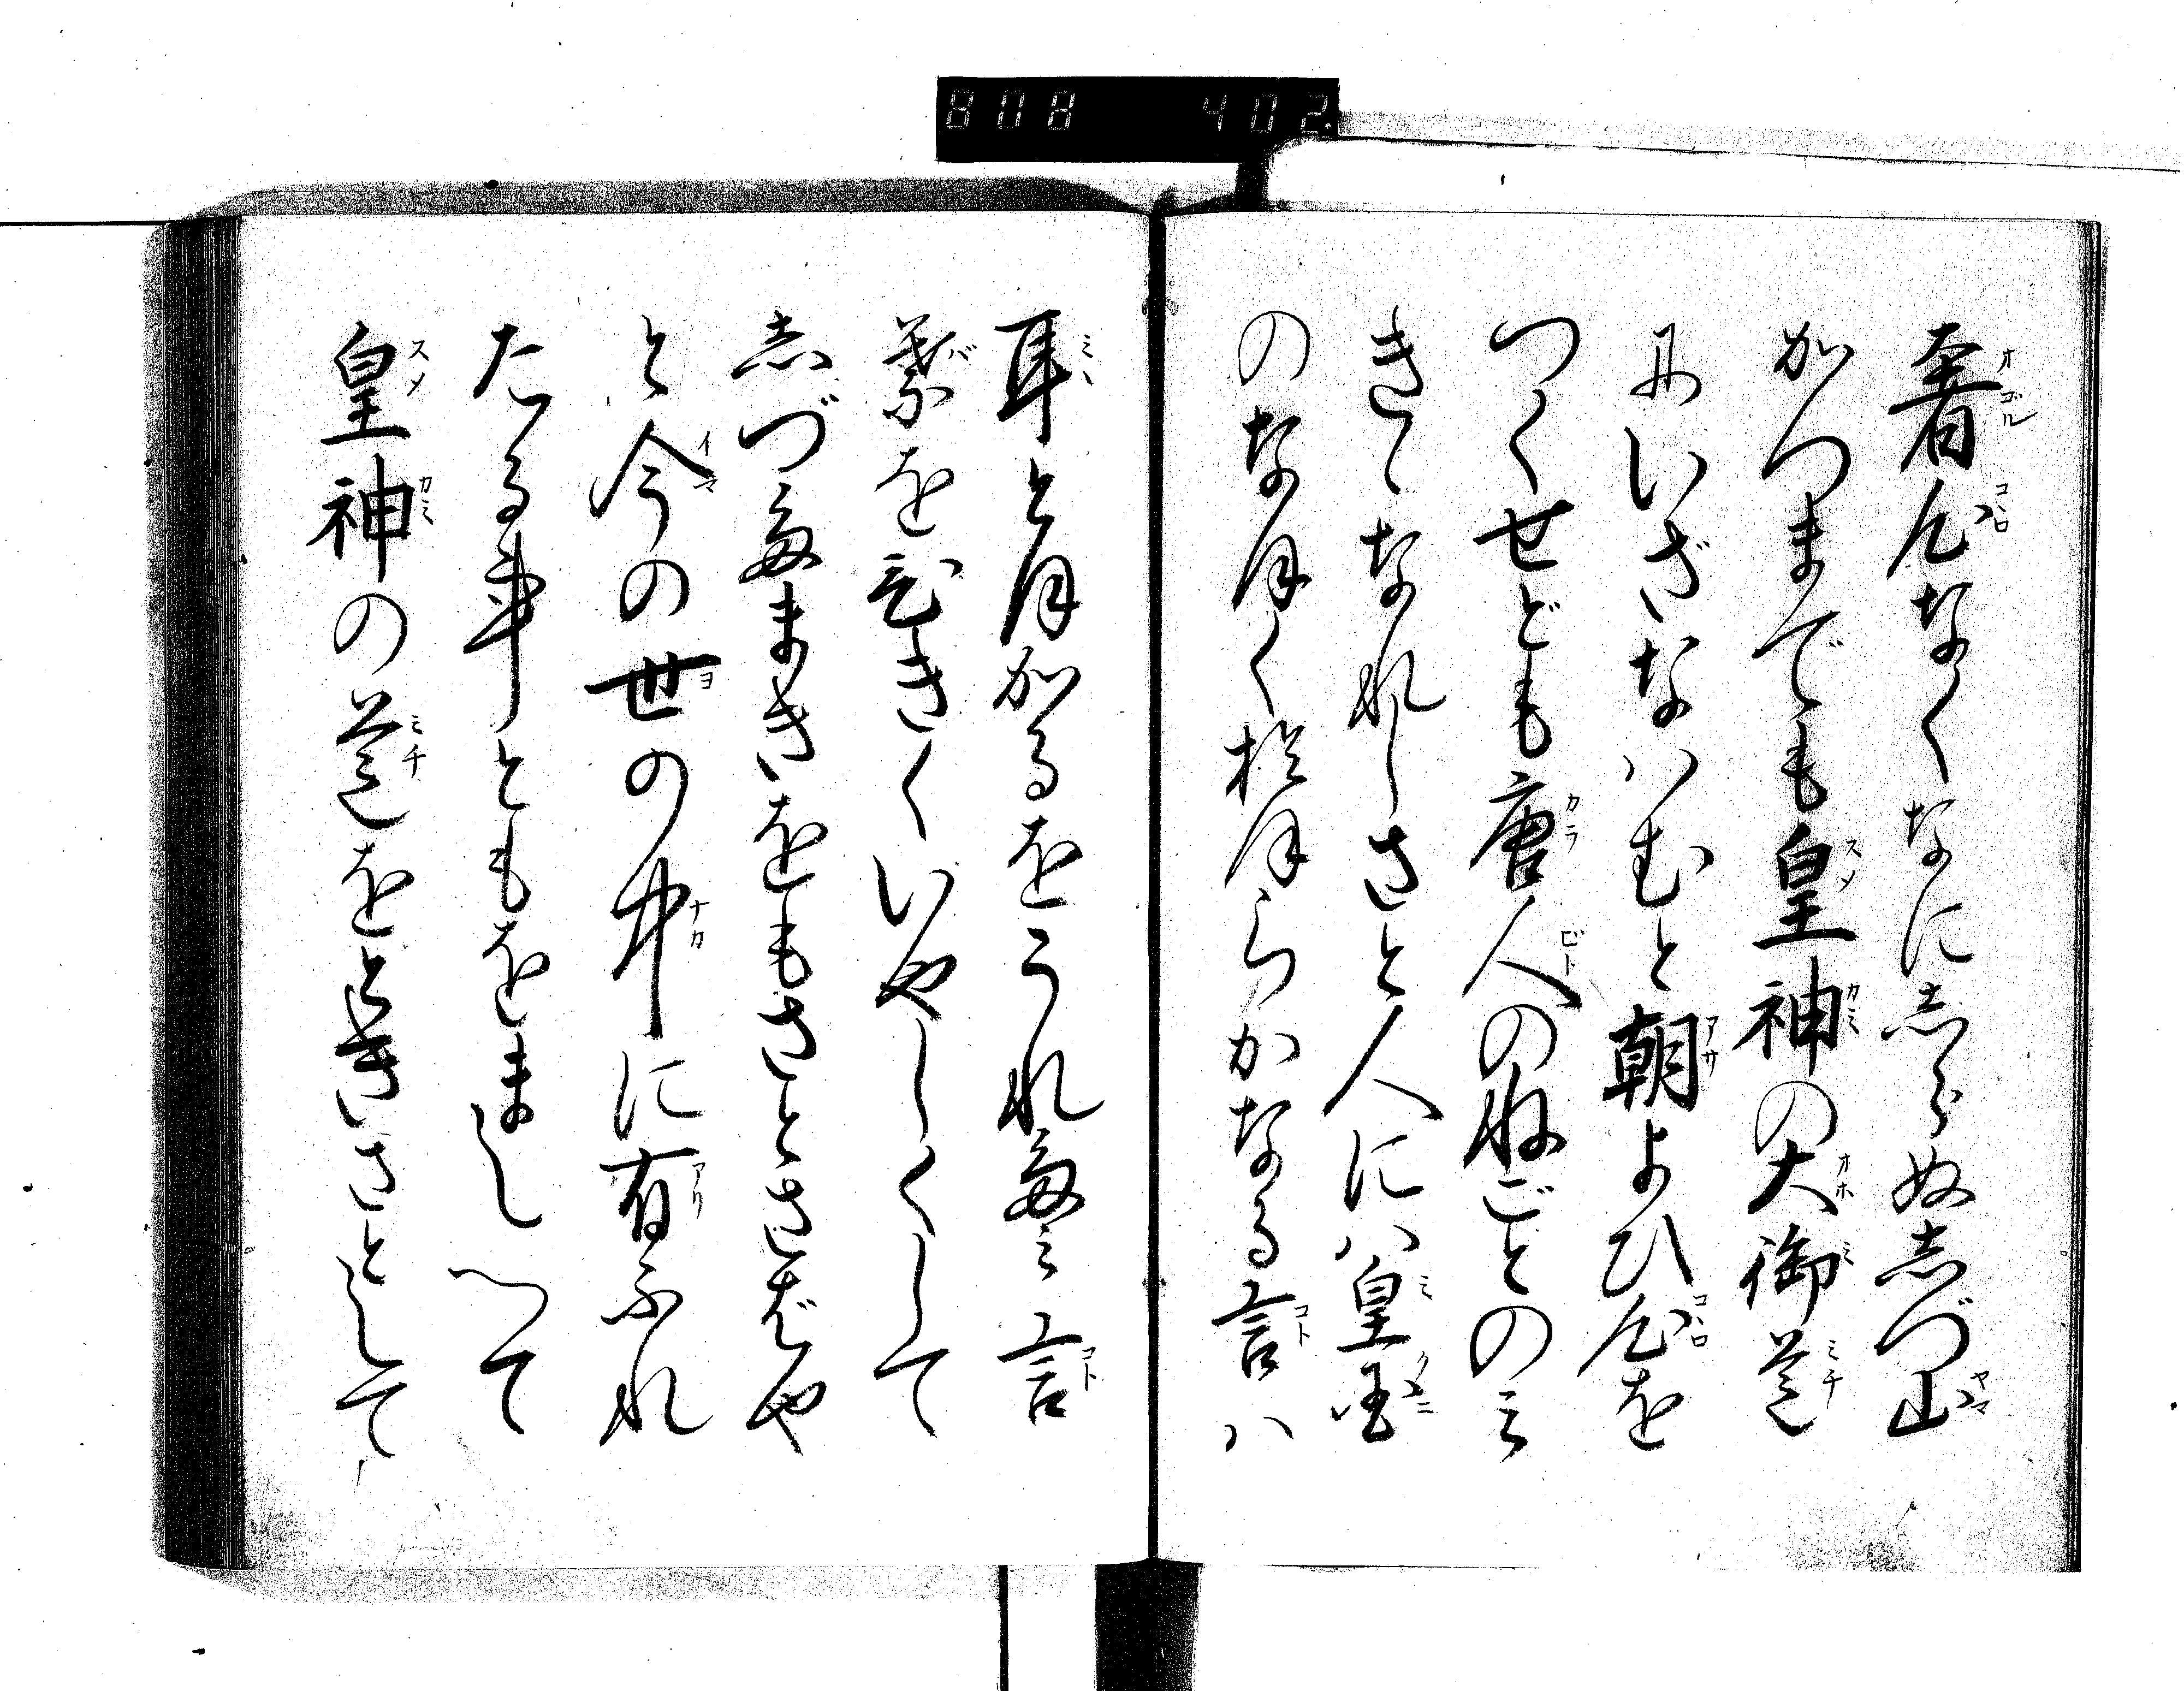 808 402
奢心なくなにしらぬしづ山
がつまでも皇神の大御道
にいざなはむと朝よひ心を
つくせども唐人のねごとのみ
きゝなれしさと人には皇国
のなほくおほらかなる言は
耳とほかるをうれたみ言
葉をひきくいやしくして
しづたまきをもさとさばや
と今の世の中に有ふれ
たる事ともをまじへて
皇神の道をときさとして